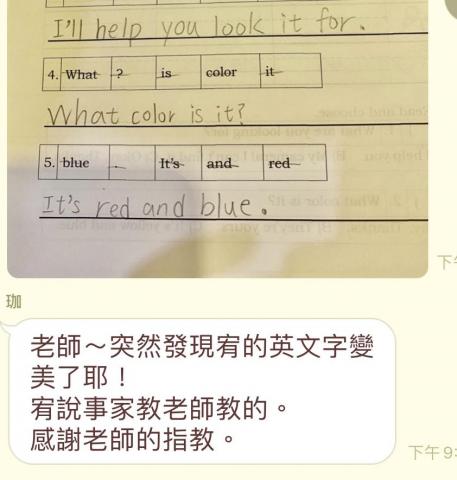 I'll help you look it for.
4. What ? is color it
What color is it?
5. blue . It's and red
It's red and blue.
下午
珈
老師～突然發現宥的英文字變
美了耶！
宥說事家教老師教的。
感謝老師的指教。
下午9: